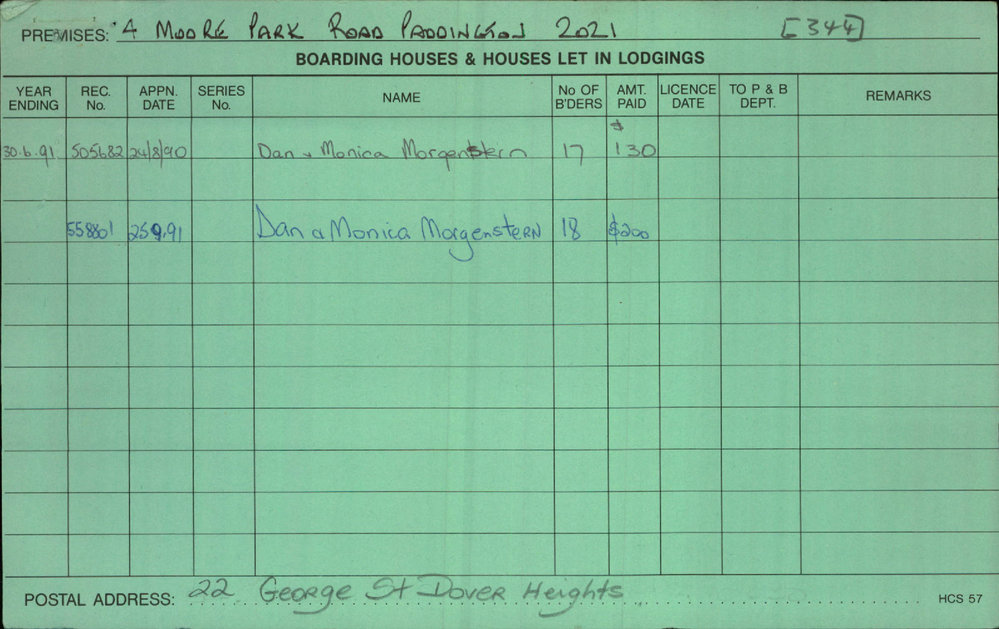 PREMISES: 4 MOORE PARK ROAD PADDINGTON 2021 [344]
BOARDING HOUSES & HOUSES LET IN LODGINGS
YEAR ENDING REC. No. APPN. DATE SERIES No. NAME No OF B'DERS AMT. PAID LICENCE DATE TO P & B DEPT. REMARKS
30.6.91 505682 24/8/90 Dan & Monica Morgenstern 17 $130
558801 25.9.91 Dan & Monica MorgenstERN 18 $200
POSTAL ADDRESS: 22 George St Dover Heights HCS 57